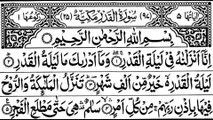 سُوْرَةُ الْقَدْرِ مَكِّيَّةٌ
بِسْمِ اللّٰهِ الرَّحْمٰنِ الرَّحِيْمِ
اِنَّاۤ اَنْزَلْنٰهُ فِيْ لَيْلَةِ الْقَدْرِ وَمَاۤ اَدْرٰىكَ مَا لَيْلَةُ الْقَدْرِ
لَيْلَةُ الْقَدْرِ خَيْرٌ مِّنْ اَلْفِ شَهْرٍ تَنَزَّلُ الْمَلٰٓئِكَةُ وَالرُّوْحُ
فِيْهَا بِاِذْنِ رَبِّهِمْ مِّنْ كُلِّ اَمْرٍ سَلٰمٌ هِيَ حَتّٰى مَطْلَعِ الْفَجْرِ